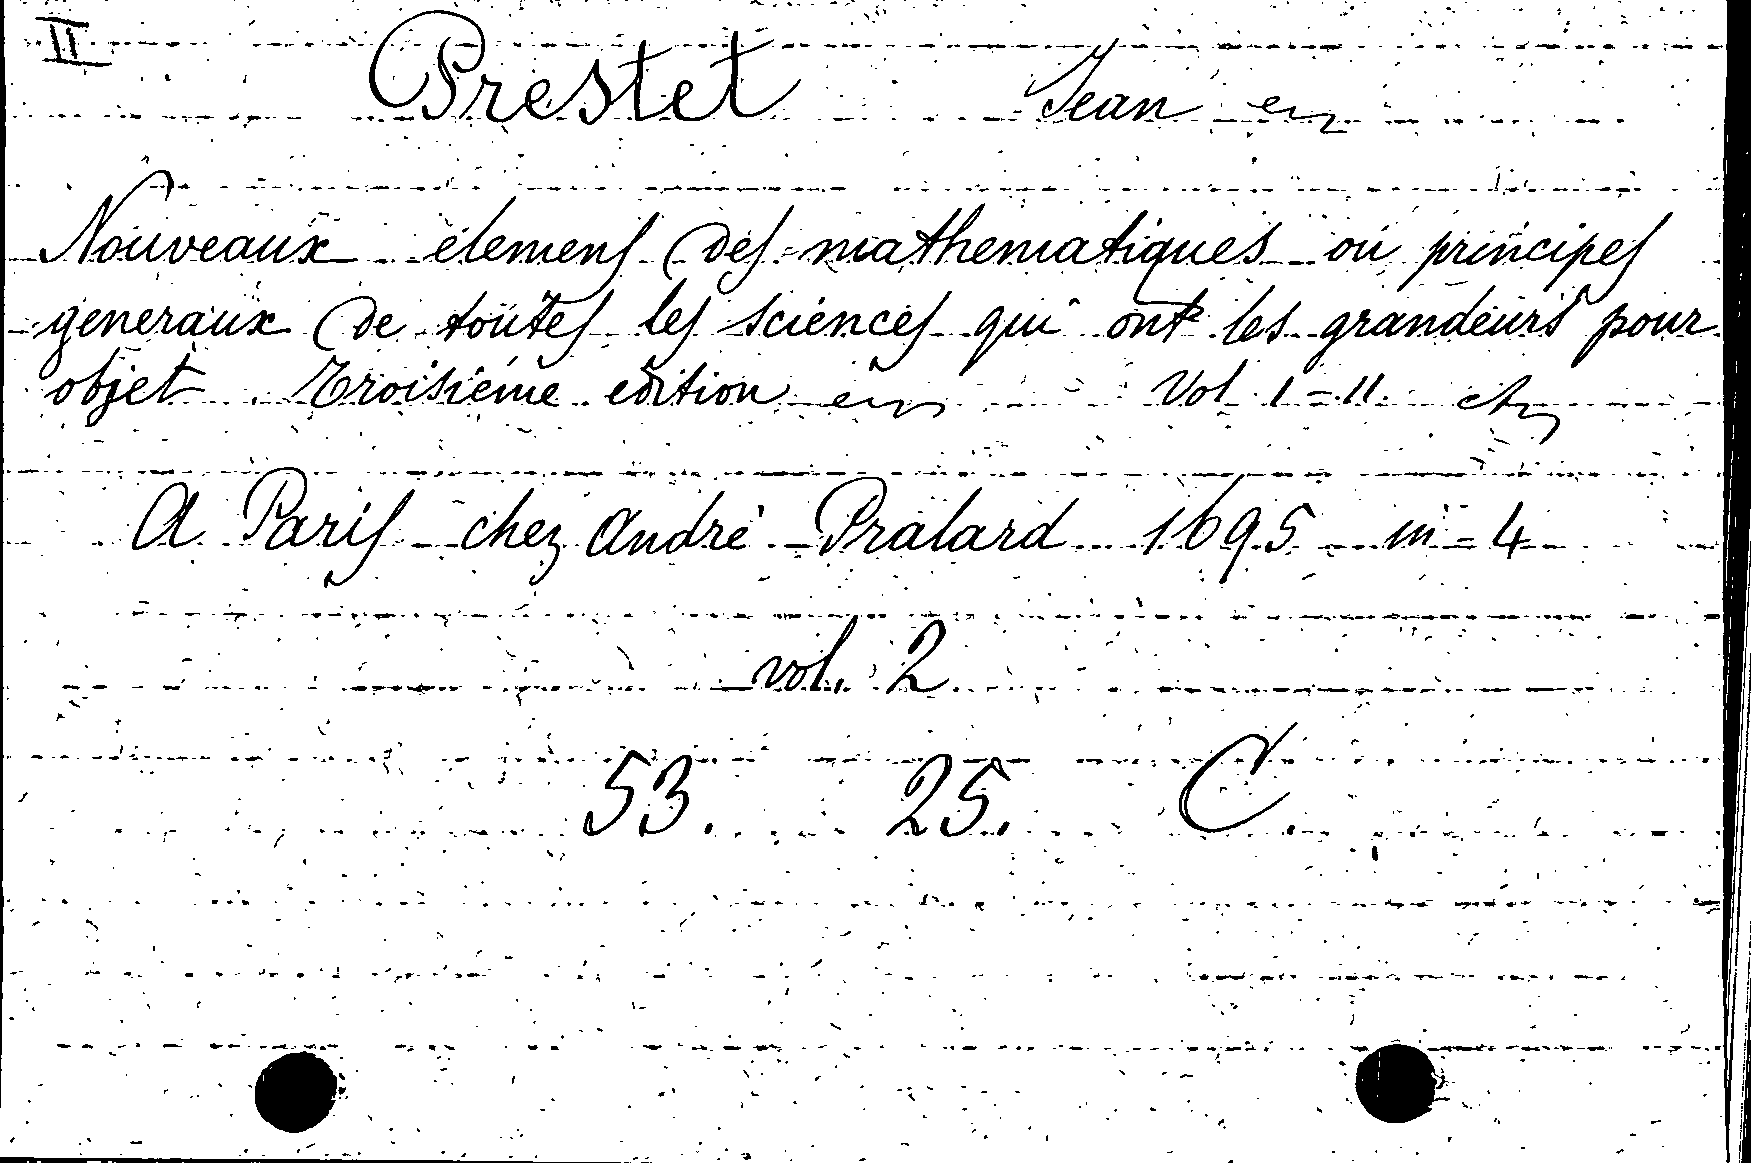 II
Prestet Jean
Nouveaux elemens des mathematiques ou principes
generaux de toutes les sciences qui ont les grandeurs pour
objet Troisieme edition Vol I-II.
A Paris chez André Pralard 1695 in-4
vol. 2
53. 25. C.